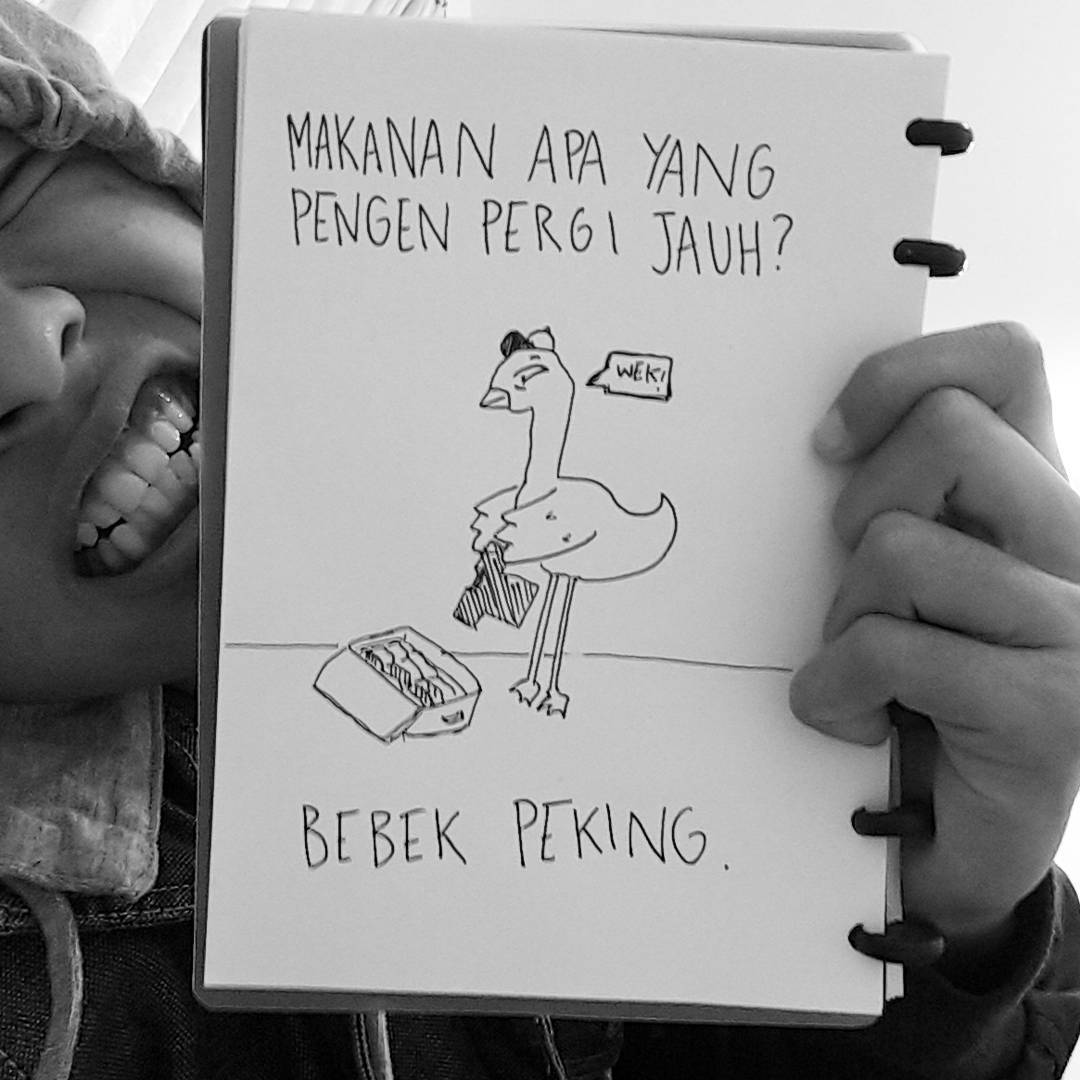 MAKANAN APA YANG
PENGEN PERGI JAUH?
WEK!
BEBEK PEKING.